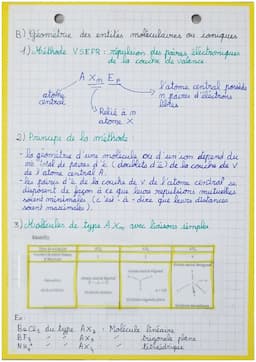 B) Géométrie des entités moléculaires ou ioniques
1) Méthode VSEPR : répulsion des paires électroniques
de la couche de valence
A Xm En
atome
central
l'atome central possède
n paires d'électrons
libres
Relié à m
atome X
2) Principe de la méthode :
- la géométrie d'une molécule ou d'un ion dépend du
nb de paires d'é (doublets d'é) de la couche de V
de l'atome central A.
- les paires d'é de la couche de V de l'atome central se
disposent de façon à ce que leurs répulsions mutuelles
soient minimales (c'est-à-dire que leurs distances
soient maximales).
3) Molécules de type AXm avec liaisons simples
Ex :
BeCl2 du type AX2 : Molécule linéaire
BF3 " " AX3 " trigonale plane
NH4+ " " AX4 " tétraédrique